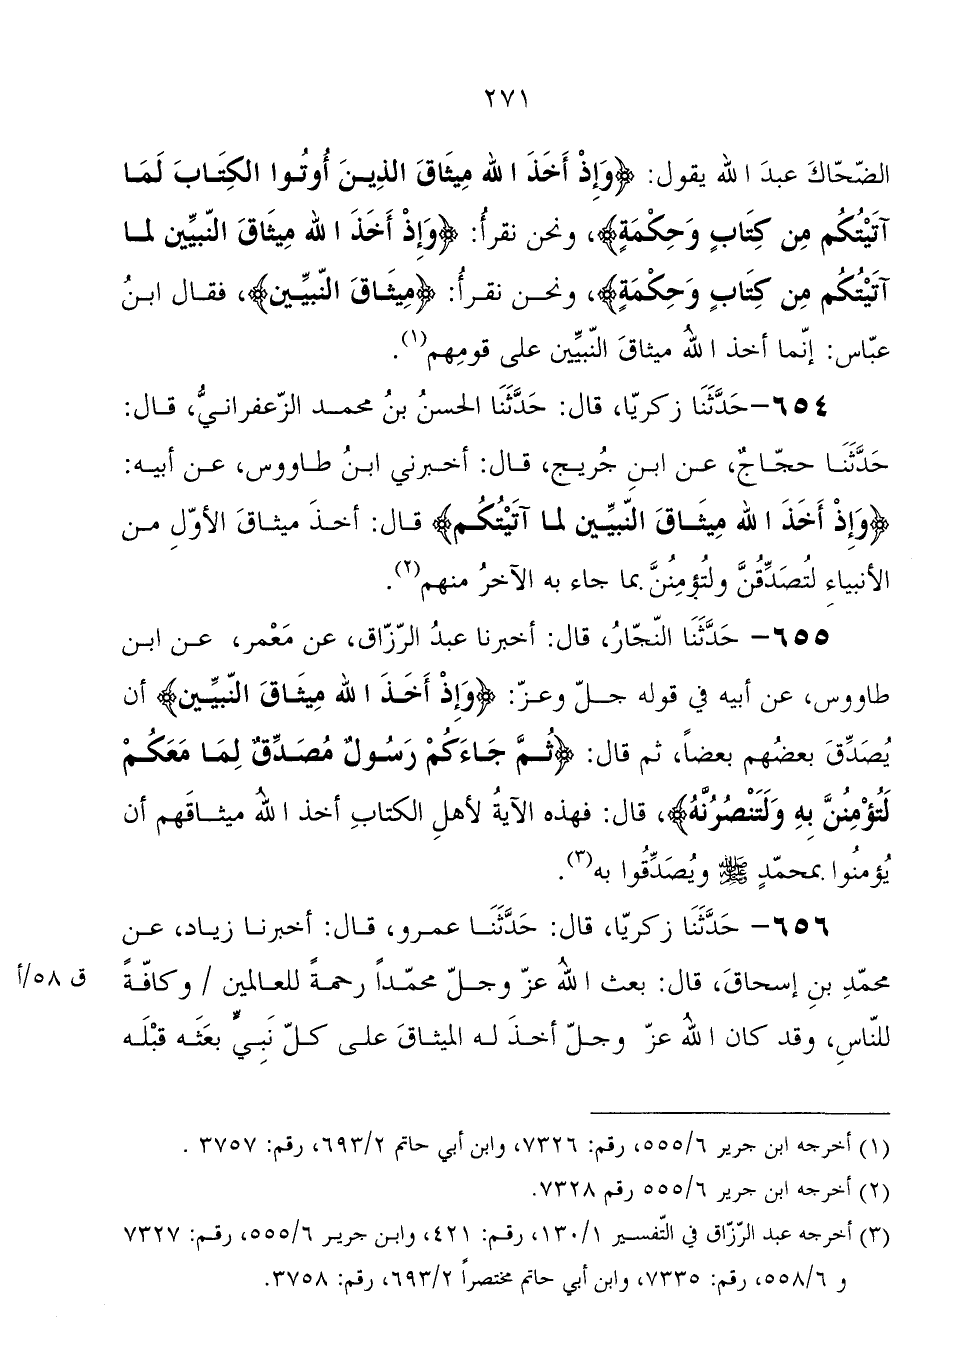 ٢٧١
الضّحّاكَ عبدَ الله يقول: ﴿وَإِذْ أَخَذَ الله مِيثَاقَ الذِينَ أُوتُوا الكِتَابَ لَمَا
آتَيْتُكُم مِن كِتَابٍ وَحِكْمَةٍ﴾، ونحن نقرأُ: ﴿وَإِذْ أَخَذَ الله مِيثَاقَ النّبيِّين لما
آتَيْتُكُم مِن كِتَابٍ وَحِكْمَةٍ﴾، ونحن نقرأُ: ﴿مِيثَاقَ النّبِيِّين﴾، فقال ابنُ
عبّاس: إنّما أخذ اللهُ ميثاقَ النّبيِّين على قومِهم(١).
٦٥٤- حَدَّثَنَا زكريّا، قال: حَدَّثَنَا الحسنُ بنُ محمد الزّعفرانيُّ، قال:
حَدَّثَنَا حجّاجٌ، عن ابنِ جُريج، قال: أخبرني ابنُ طاووس، عن أبيه:
﴿وَإِذْ أَخَذَ الله مِيثَاقَ النّبيِّين لما آتَيْتُكُم﴾ قال: أخذَ ميثاقَ الأوّلِ من
الأنبياءِ لتُصَدِّقُنَّ ولتُؤمِنُنَّ بما جاء به الآخرُ منهم(٢).
٦٥٥- حَدَّثَنَا النّجّارُ، قال: أخبرنا عبدُ الرّزّاق، عن مَعْمر، عن ابن
طاووس، عن أبيه في قوله جلّ وعزّ: ﴿وَإِذْ أَخَذَ الله مِيثَاقَ النّبيِّين﴾ أن
يُصَدِّقَ بعضُهم بعضاً، ثم قال: ﴿ثُمَّ جَاءَكُمْ رَسُولٌ مُصَدِّقٌ لِمَا مَعَكُمْ
لَتُؤْمِنُنَّ بِهِ وَلَتَنْصُرُنَّهُ﴾، قال: فهذه الآيةُ لأهلِ الكتابِ أخذ اللهُ ميثاقَهم أن
يُؤمنُوا بمحمّدٍ ﷺ ويُصَدِّقُوا به(٣).
٦٥٦- حَدَّثَنَا زكريّا، قال: حَدَّثَنَا عمرو، قال: أخبرنا زياد، عن
محمّدِ بنِ إسحاقَ، قال: بعث اللهُ عزّ وجلّ محمّداً رحمةً للعالمين / وكافّةً
ق ٥٨/أ
للنّاسِ، وقد كان اللهُ عزّ وجلّ أخذَ له الميثاقَ على كلّ نَبيٍّ بعَثَه قبْلَه
(١) أخرجه ابن جرير ٥٥٥/٦، رقم: ٧٣٢٦، وابن أبي حاتم ٦٩٣/٢، رقم: ٣٧٥٧ .
(٢) أخرجه ابن جرير ٥٥٥/٦ رقم ٧٣٢٨.
(٣) أخرجه عبد الرّزّاق في التّفسير ١٣٠/١، رقم: ٤٢١، وابن جرير ٥٥٥/٦، رقم: ٧٣٢٧
و ٥٥٨/٦، رقم: ٧٣٣٥، وابن أبي حاتم مختصراً ٦٩٣/٢، رقم: ٣٧٥٨.